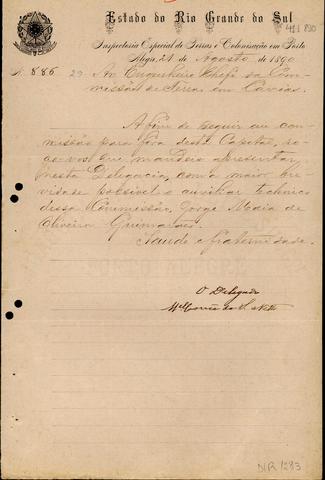 Estado do Rio Grande do Sul
Inspectoria Especial de Terras e Colonisação em Porto
Alegre, 21 de Agosto de 1890
N. 886
Ao Engenheiro Chefe da Com-
missão de Terras em Caxias.
A fim de seguir em com-
missão para fora desta Capital, ro-
go-vos que mandeis apresentar
nesta Delegacia, com a maior bre-
vidade possivel o auxiliar technico
dessa Commissão, Jorge Maia de
Oliveira Guimarães.
Saude e fraternidade.
O Delegado
DIR 1283